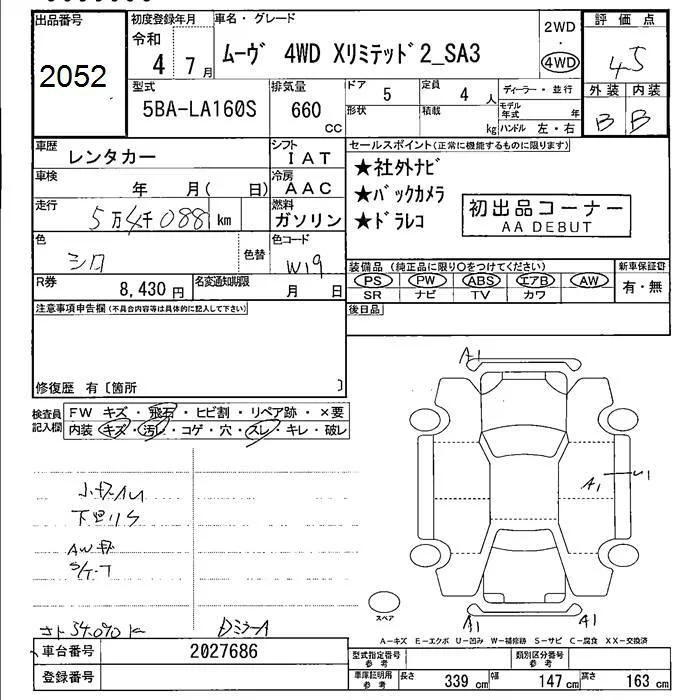 出品番号
2052
初度登録年月
令和
4 7月
車名・グレード
ムーヴ 4WD Xリミテッド2_SA3
2WD
・
4WD
評価点
4.5
外装 内装
B B
型式
5BA-LA160S
排気量
660
CC
ドア
5
定員
4 人
形状
積載
kg
ディーラー・並行
モデル年式 年
ハンドル 左・右
車歴
レンタカー
シフト
IAT
車検
年 月( 日)
冷房
AAC
走行
5万4千088 km
燃料
ガソリン
色
シロ
色替
色コード
W19
R券
8,430 円
名変通知期限
月 日
セールスポイント(正常に機能するものに限ります)
★社外ナビ
★バックカメラ
★ドラレコ
初出品コーナー
AA DEBUT
装備品 (純正品に限り○をつけてください)
PS PW ABS エアB AW
SR ナビ TV カワ
新車保証書
有・無
後日品
注意事項申告欄(不具合内容等は具体的に記入して下さい)
修復歴 有〔箇所 〕
検査員記入欄
FW キズ・飛石・ヒビ割・リペア跡・×要
内装 キズ・汚レ・コゲ・穴・スレ・キレ・破レ
小キズAU
下廻りS
AWキズ
S/T-T
Dミラー A
A1
A1
U1
A1
A1
スペア
A-キズ E-エクボ U-凹み W-補修跡 S-サビ C-腐食 XX-交換済
車台番号
2027686
登録番号
型式指定番号
参考
類別区分番号
参考
車庫証明用
参考
長さ 339 cm
幅 147 cm
高さ 163 cm